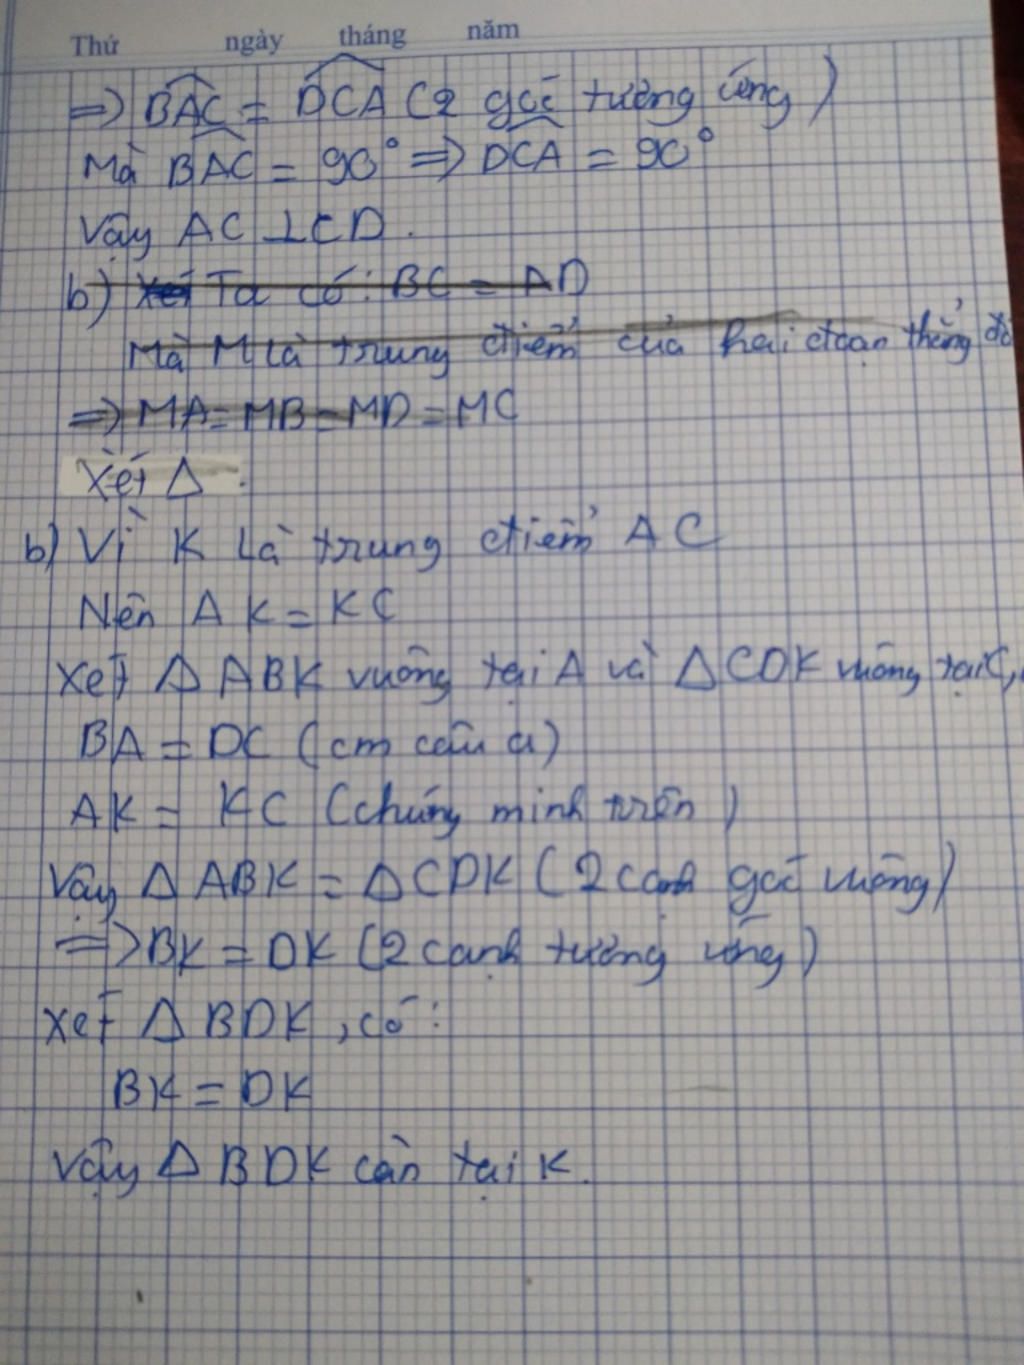 Thứ ngày tháng năm
=> BAC = DCA (2 góc tương ứng)
Mà BAC = 90° => DCA = 90°
Vậy AC ⊥ CD.
b) Xét Ta có: BC = AD
Mà M là trung điểm của hai đoạn thẳng đó
=> MA = MB = MD = MC
Xét Δ.
b) Vì K là trung điểm AC
Nên AK = KC
Xét Δ ABK vuông tại A và Δ CDK vuông tại C,
BA = DC (cm câu a)
AK = KC (chứng minh trên)
Vậy Δ ABK = Δ CDK (2 cạnh góc vuông)
=> BK = DK (2 cạnh tương ứng)
Xét Δ BDK, có:
BK = DK
Vậy Δ BDK cân tại K.